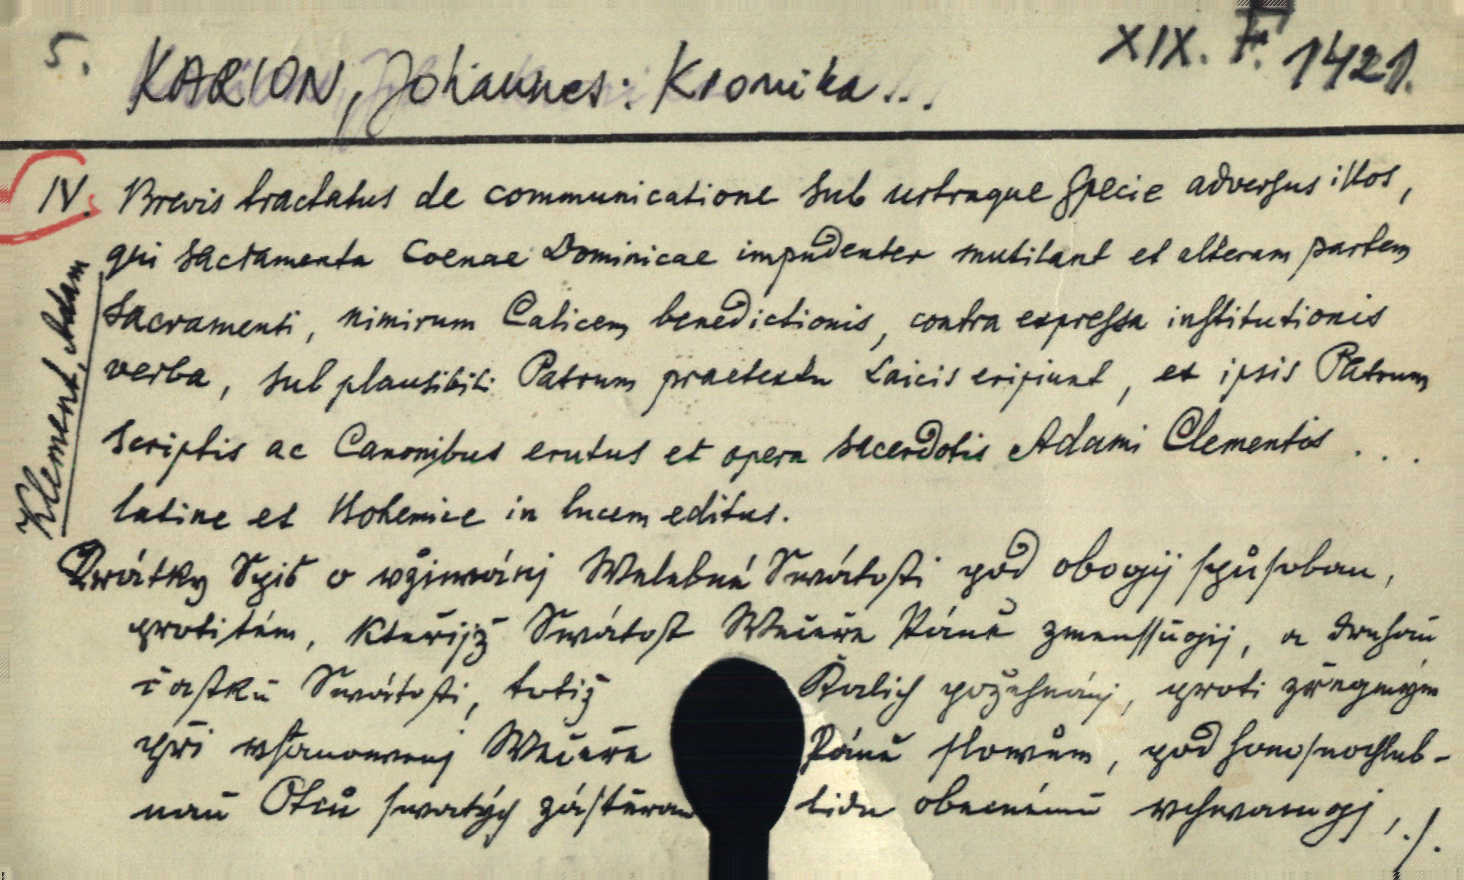 5. KARION, Johannes: Kronika... XIX. F. 1421.
IV. Brevis tractatus de communicatione sub utraque specie adversus illos,
qui sacramenta Coenae Dominicae impudenter mutilant et alteram partem
Sacramenti, nimirum Calicem benedictionis, contra expressa institutionis
verba, sub plausibili Patrum praetextu Laicis eripiunt, ex ipsis Patrum
Scriptis ac Canonibus erutus et opera sacerdotis Adami Clementis ...
latine et Bohemice in lucem editus.
Klement, Adam
Krátky Spis o vžiwánj Welebné Swátosti pod obogij spůsobau,
proti těm, kteřijž Swátost Wečeře Páně zmenssugij, a druhau
částku Swátosti, totiž Kalich požehnánj, proti zřegmým
při vstanowenj Wečeře Páně slowům, pod honosnochlub-
nau Otců swatých zástěrau lidu obecnému vchwacugj, ./.